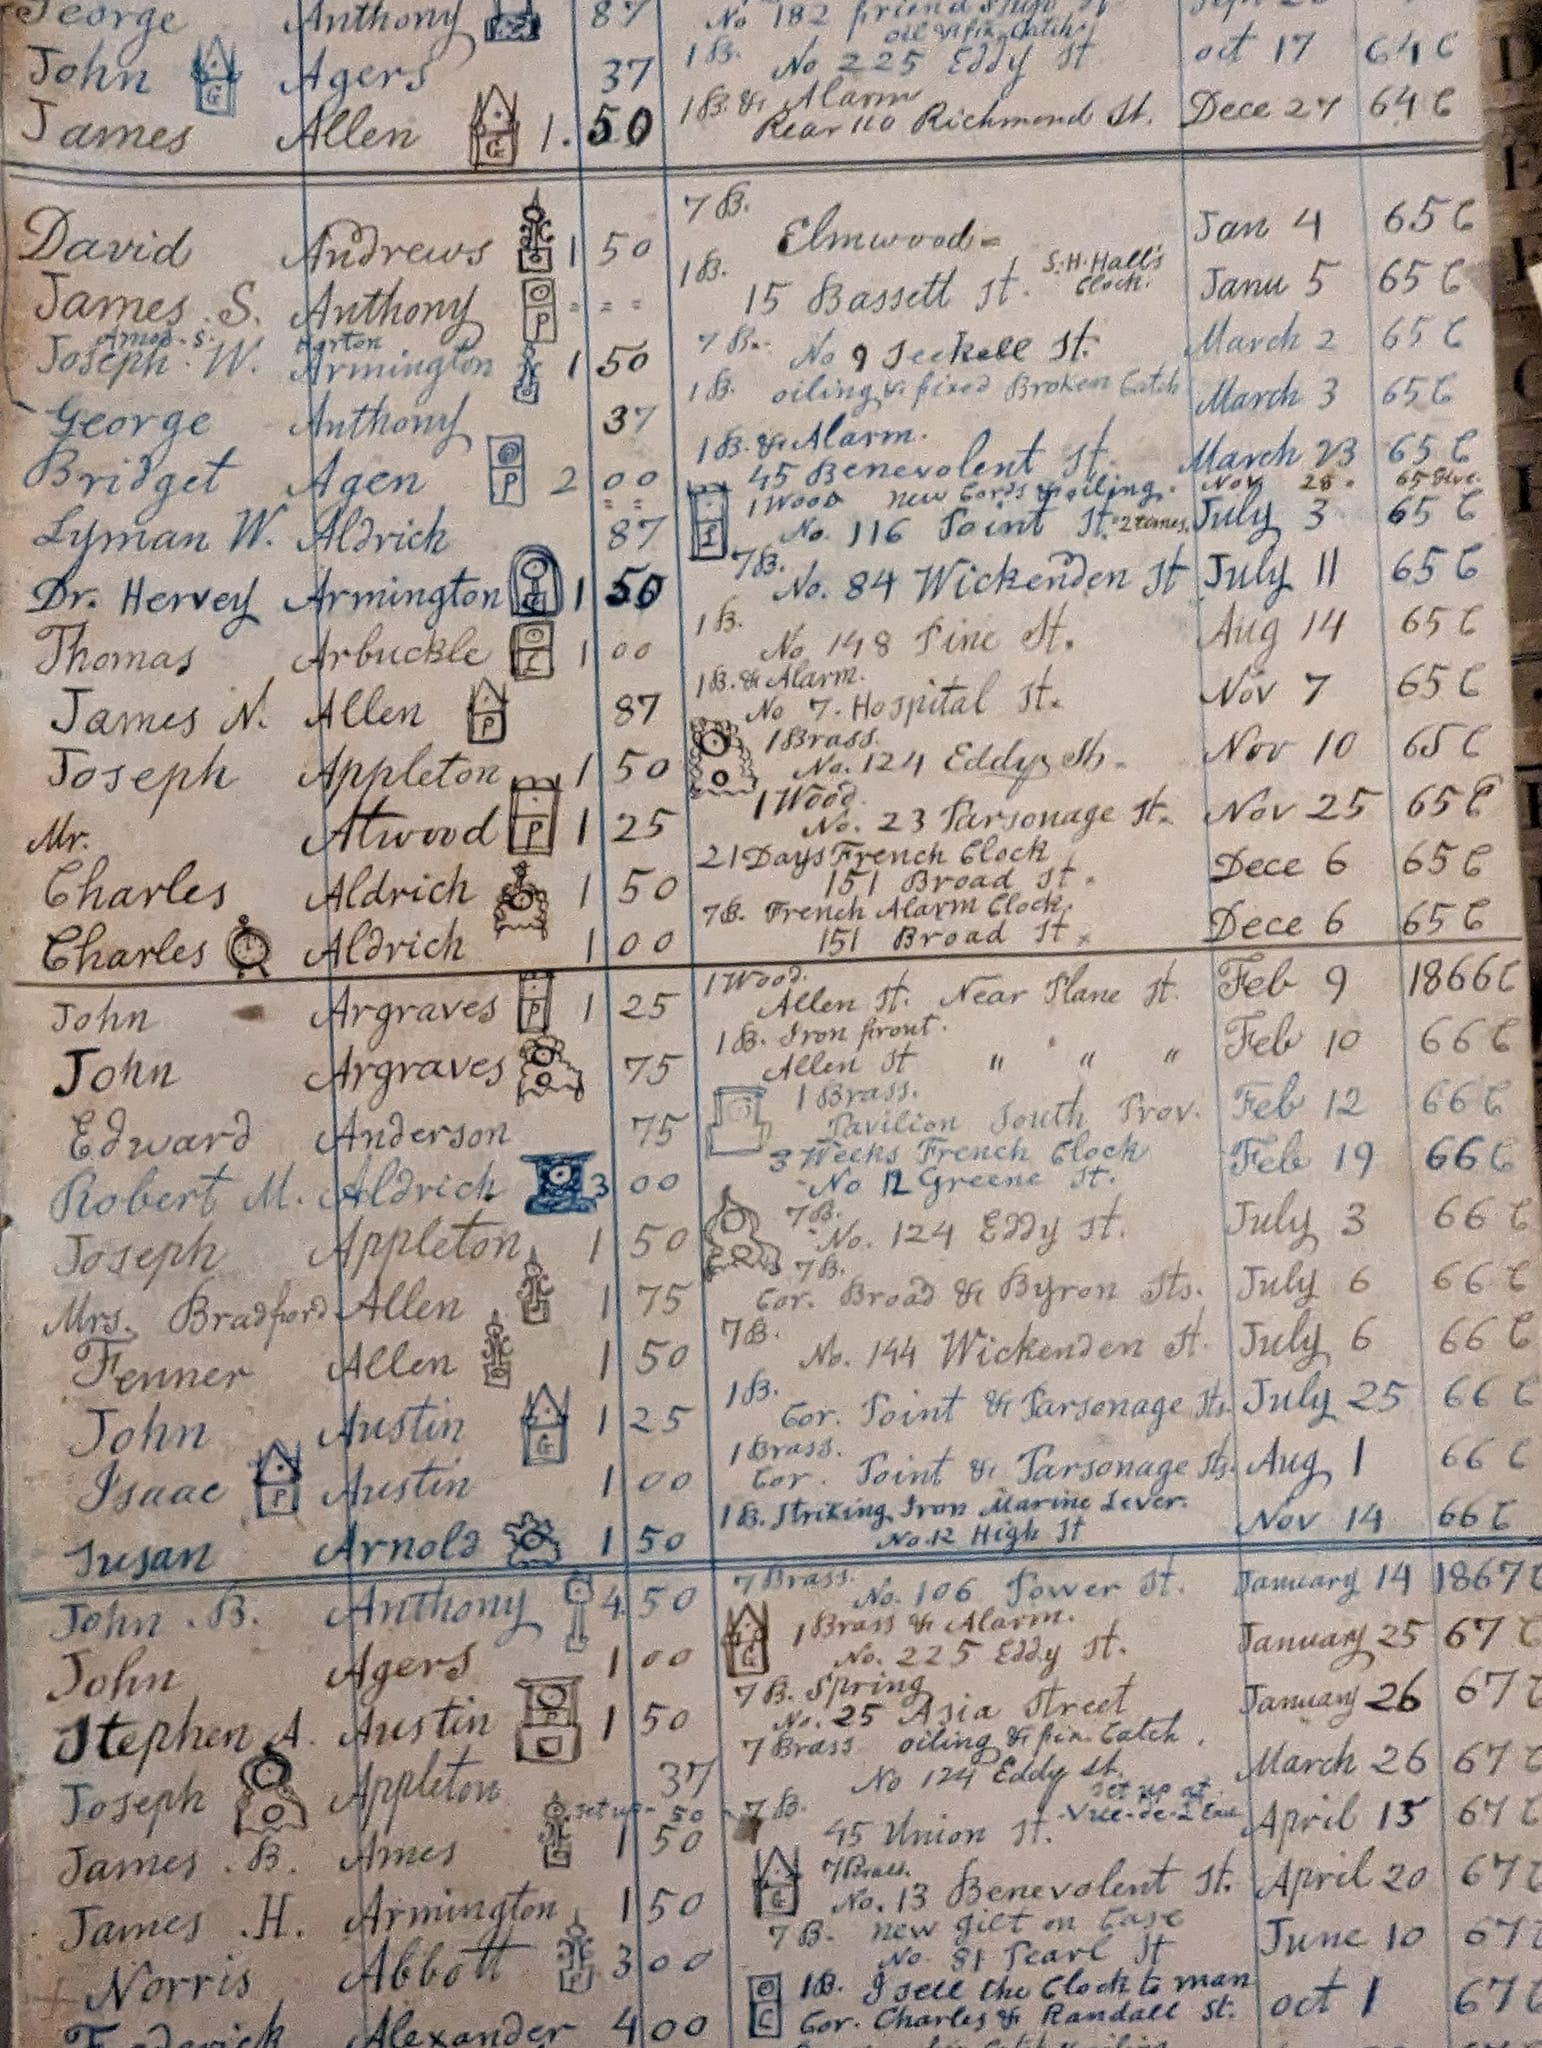 George Anthony 87 No 182 friend Ship St
oil & fix Catch
John G Agers 37 1 B. No 225 Eddy St oct 17 64 C
James Allen G 1.50 1 B. & Alarm Dece 27 64 C
Rear 110 Richmond St.
David Andrews 1 50 7 B. Elmwood= Jan 4 65 C
James S. Anthony P = = = 1 B. 15 Bassett St. S. H. Hall's Clock. Janu 5 65 C
Amos. S. Horton
Joseph W. Armington 1 50 7 B. No 9 Seekell St. March 2 65 C
George Anthony 37 1 B. oiling & fixed Broken Catch March 3 65 C
Bridget Agen P 2 00 1 B. & Alarm. 45 Benevolent St. March 23 65 C
= = 1 Wood new Cords & oiling. Nov 28. 65
Lyman W. Aldrich 87 No. 116 Point St. =2 times. July 3 65 C
Dr. Hervey Armington 1 50 7 B. No. 84 Wickenden St July 11 65 C
Thomas Arbuckle 1 00 1 B. No. 148 Pine St. Aug 14 65 C
James N. Allen P 87 1 B. & Alarm. No 7. Hospital St. Nov 7 65 C
Joseph Appleton 1 50 1 Brass. No. 124 Eddy St. Nov 10 65 C
Mr. Atwood P 1 25 1 Wood. No. 23 Parsonage St. Nov 25 65 C
Charles Aldrich 1 50 21 Days French Clock Dece 6 65 C
151 Broad St.
Charles Aldrich 1 00 7 B. French Alarm Clock. Dece 6 65 C
151 Broad St.
John Argraves P 1 25 1 Wood. Allen St. Near Plane St. Feb 9 1866 C
John Argraves 75 1 B. Iron front. Feb 10 66 C
Allen St " " "
Edward Anderson 75 1 Brass. Pavilion South Prov. Feb 12 66 C
Robert M. Aldrich 3 00 3 Weeks French Clock Feb 19 66 C
No 12 Greene St.
Joseph Appleton 1 50 7 B. No. 124 Eddy St. July 3 66 C
Mrs. Bradford Allen 1 75 7 B. Cor. Broad & Byron Sts. July 6 66 C
Fenner Allen 1 50 7 B. No. 144 Wickenden St. July 6 66 C
John Austin G 1 25 1 B. Cor. Point & Parsonage Sts. July 25 66 C
Isaac P Austin 1 00 1 Brass. Cor. Point & Parsonage Sts. Aug 1 66 C
Susan Arnold 1 50 1 B. Striking Iron Marine Lever. Nov 14 66 C
No. 12 High St
John B. Anthony 4.50 7 Brass. No. 106 Power St. January 14 1867 C
John Agers 1 00 G 1 Brass & Alarm. January 25 67 C
No. 225 Eddy St.
Stephen A. Austin 1 50 7 B. Spring January 26 67 C
No. 25 Asia Street
Joseph Appleton 37 7 Brass oiling & fix Catch. March 26 67 C
No 124 Eddy St.
set up= 50 Set up at
James B. Ames 1 50 7 B. 45 Union St. April 15 67 C
James H. Armington 1 50 G 7 Brass. No. 13 Benevolent St. April 20 67 C
Norris Abbott P 3 00 7 B. new gilt on Case June 10 67 C
No. 81 Pearl St
Frederick Alexander 4 00 C 1 B. I sell the Clock to man oct 1 67 C
Cor. Charles & Randall St.